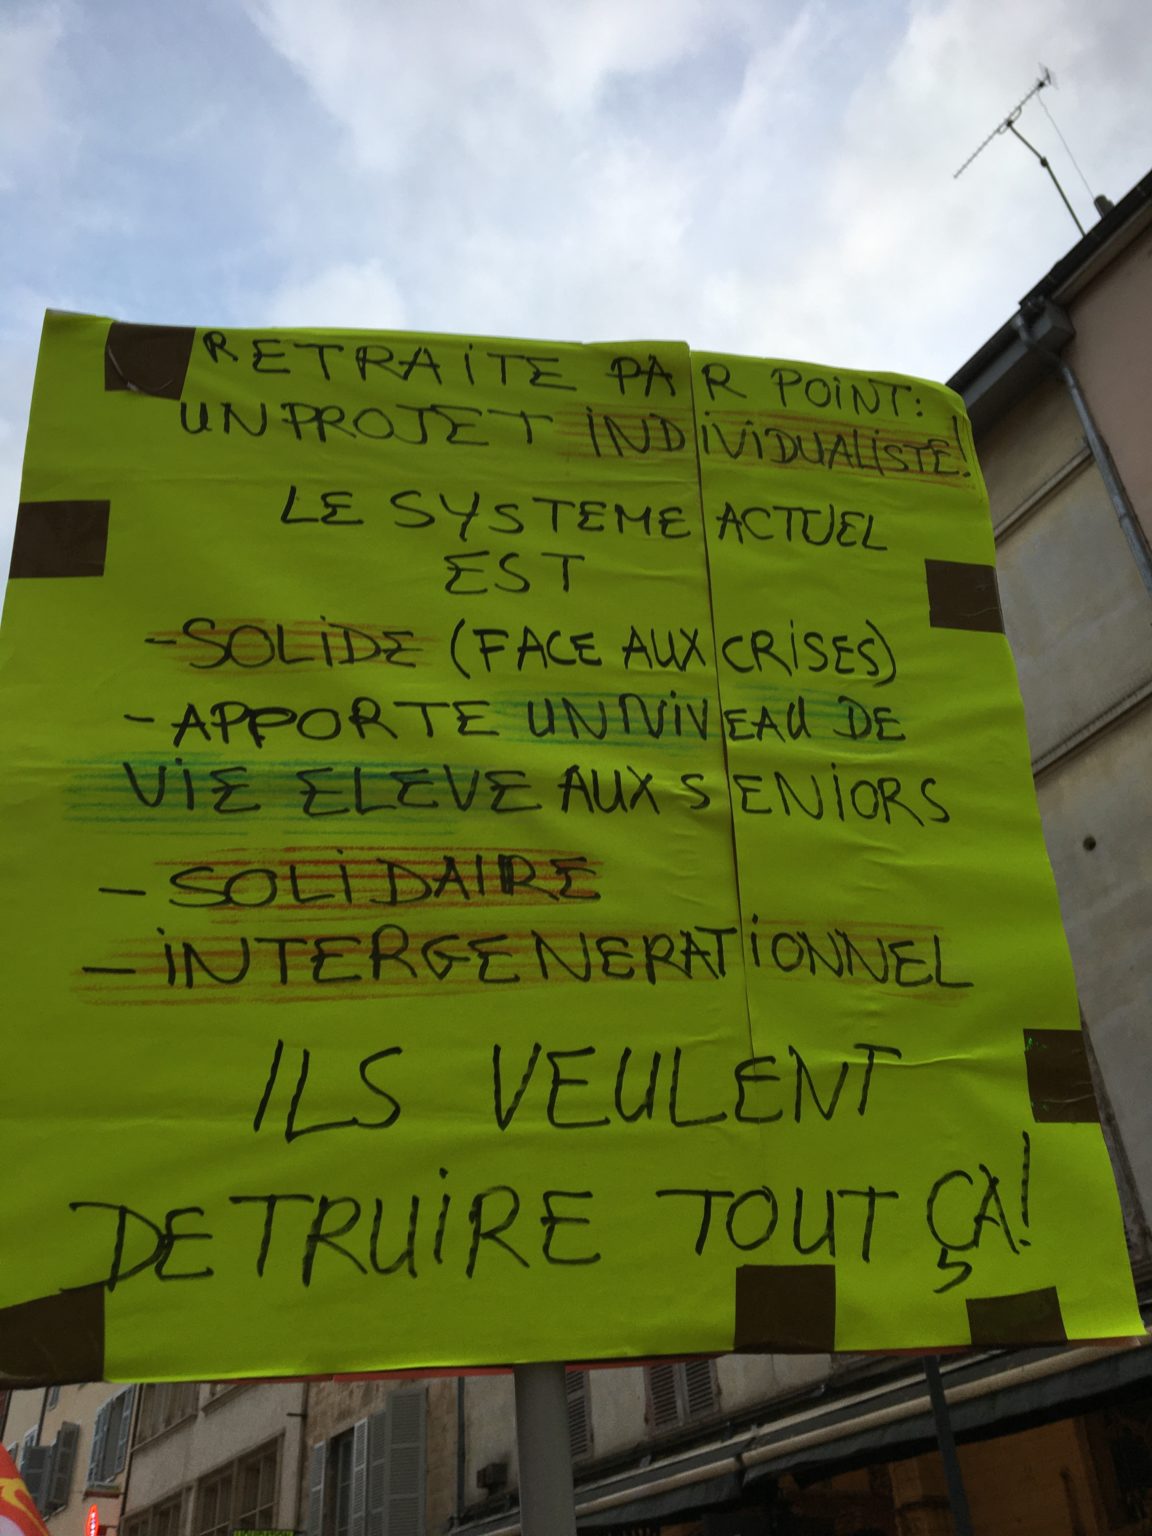 RETRAITE PAR POINT:
UN PROJET INDIVIDUALISTE!
LE SYSTEME ACTUEL
EST
- SOLIDE (FACE AUX CRISES)
- APPORTE UN NIVEAU DE
VIE ELEVE AUX SENIORS
- SOLIDAIRE
- INTERGENERATIONNEL
ILS VEULENT
DETRUIRE TOUT ÇA!